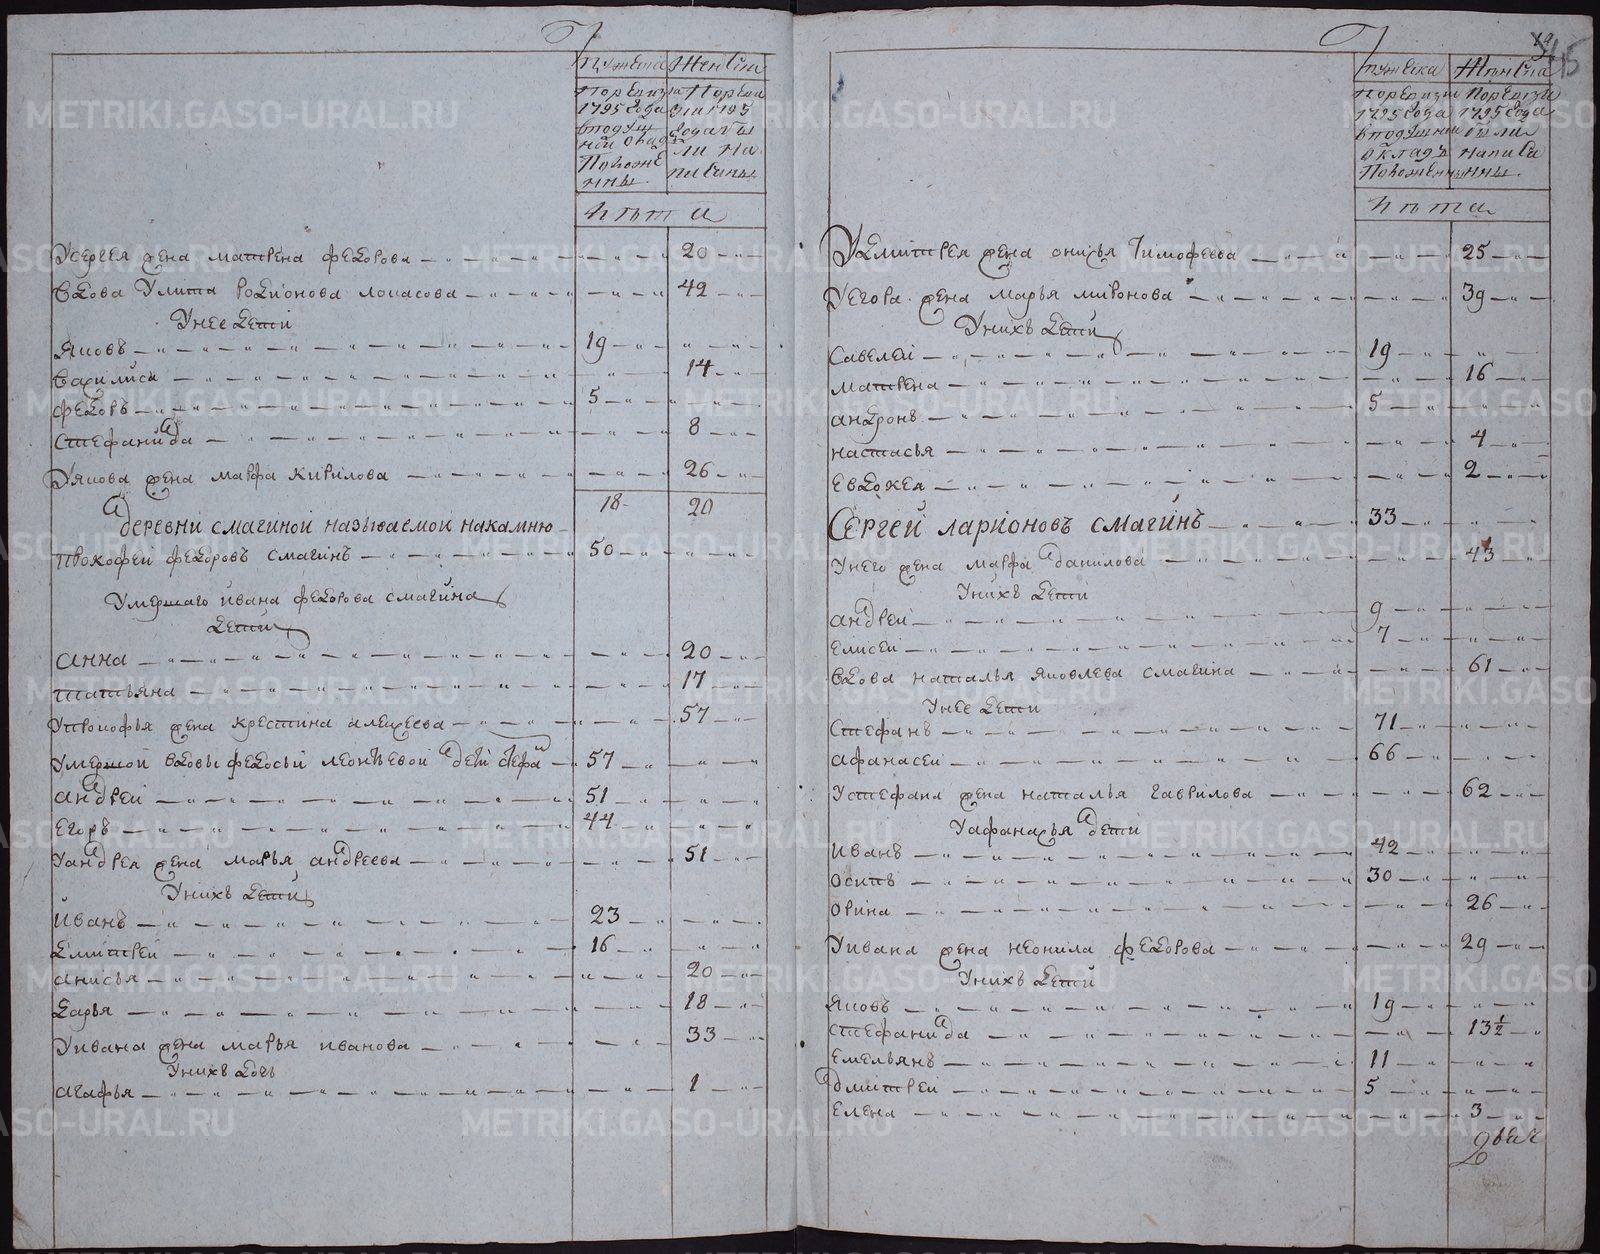 мужеска Женска
Поревизи 1795 Года вподушной окладъ Положенны
Поревизи 1795 Года были написаны
лѣта
Усергея жена матрена федорова 20
вдова Улита родионова 42
Унее дети
Яковъ 19
василиса 14
федоръ 5
стефанида 8
Уякова жена марфа кирилова 26
18 20
деревни смагиной называемой накамню
прокофей федоровъ смагинъ 50
Умершаго ивана федорова смагина
дети
анна 20
татьяна 17
Упрокофья жена крестина алексеева 57
Умершой вдовы федосьи леонтьевой дети 57
андреи 51
егоръ 44
Уандрея жена марья андреева 51
Унихъ дети
иванъ 23
дмитреи 16
анисья 20
дарья 18
Уивана жена марья иванова 33
Унихъ дочь
агафья 1
45
мужеска Женска
Поревизи 1795 Года вподушный окладъ Положенны
Поревизи 1795 Года были написанны
лѣта
Удмитрея жена онисья тимофеева 25
Уегора жена марья миронова 39
Унихъ дети
савелеи 19
матрена 16
андронъ 5
настасья 4
евдокея 2
Сергей ларионовъ смагинъ 33
Унего жена марфа данилова 43
Унихъ дети
андреи 9
елисеи 7
вдова наталья яковлева смагина 61
Унее дети
стефанъ 71
афанасеи 66
Устефана жена наталья гаврилова 62
Уафанасья дети
иванъ 42
осипъ 30
орина 26
Уивана жена неонила федорова 29
Унихъ дети
яковъ 19
стефанида 13½
емельянъ 11
дмитреи 5
елена 3
METRIKI.GASO-URAL.RU